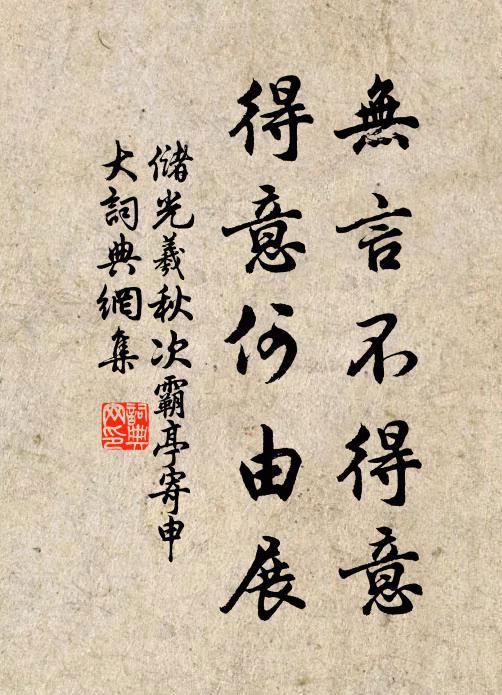 無言不得意
得意何由展
儲光羲秋次霸亭寄申
大詞典網集
詞典網印